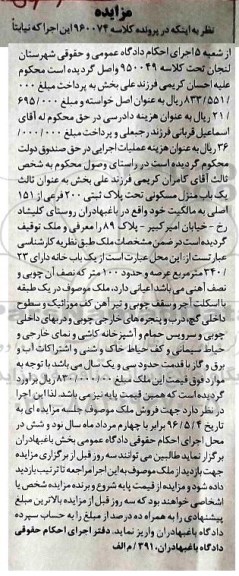 مزایده
نظر به اینکه در پرونده کلاسه ۹۶۰۰۷۴ این اجرا که نیابتاً
از شعبه ۵ اجرای احکام دادگاه عمومی و حقوقی شهرستان
لنجان تحت کلاسه ۹۵۰۰۴۹ واصل گردیده است محکوم
علیه احسان کریمی فرزند علی بخش به پرداخت مبلغ ۰۰۰
/۸۳۳/۵۵۱ ریال به عنوان اصل خواسته و مبلغ ۶۹۵/۰۰۰
/۲۱ ریال به عنوان هزینه دادرسی در حق محکوم له آقای
اسماعیل قربانی فرزند رجبعلی و پرداخت مبلغ ۰۰۰/۰۰۰/
۳۶ ریال به عنوان هزینه عملیات اجرایی در حق صندوق دولت
محکوم گردیده است در راستای وصول محکوم به شخص
ثالث آقای کامران کریمی فرزند علی بخش به عنوان ثالث
یک باب منزل مسکونی تحت پلاک ثبتی ۲۰۰ فرعی از ۱۵۱
اصلی به مالکیت خود واقع در باغبهادران روستای کلیشاد
رخ - خیابان امیرکبیر - پلاک ۸۹ را معرفی و ملک توقیف
گردیده است در ضمن مشخصات ملک طبق نظریه کارشناسی
عبارتست از: این محل عبارت است از یک باب خانه دارای ۲۳
/۳۴۰ مترمربع عرصه و حدود ۱۰۰ متر که نصف آن چوبی و
نصف آهنی می باشد اعیانی دارد، ملک موصوف در یک طبقه
با اسکلت آجر و سقف چوبی و تیر آهن کف موزائیک و سطوح
داخلی گچ، درب و پنجره های خارجی چوبی و دربهای داخلی
چوبی و سرویس حمام و آشپزخانه کاشی و نمای خارجی و
حیاط سیمانی و کف حیاط خاک و شنی و اشتراکات آب و
برق و گاز با قدمت حدود سی و یک سال می باشد با توجه به
موارد فوق قیمت این ملک مبلغ ۸۳۰/۰۰۰/۰۰۰ ریال برآورد
گردیده است که همین قیمت پایه نیز می باشد. لذا این اجرا
در نظر دارد جهت فروش ملک موصوف جلسه مزایده ای به
تاریخ ۹۶/۵/۴ برابر با چهارم مرداد ماه سال نود و شش در
محل اجرای احکام حقوقی دادگاه عمومی بخش باغبهادران
برگزار نماید طالبین می توانند سه روز قبل از برگزاری مزایده
جهت بازدید از ملک موصوف به این اجرا مراجعه تا ترتیب بازدید
داده شود و مزایده از قیمت پایه شروع و برنده مزایده شخص یا
اشخاصی خواهند بود که سه روز قبل از مزایده بالاترین مبلغ
پیشنهادی را به همراه ده درصد از مبلغ را به حساب سپرده
دادگاه باغبهادران واریز نماید. دفتر اجرای احکام حقوقی
دادگاه باغبهادران. ۳۹۱/ م الف